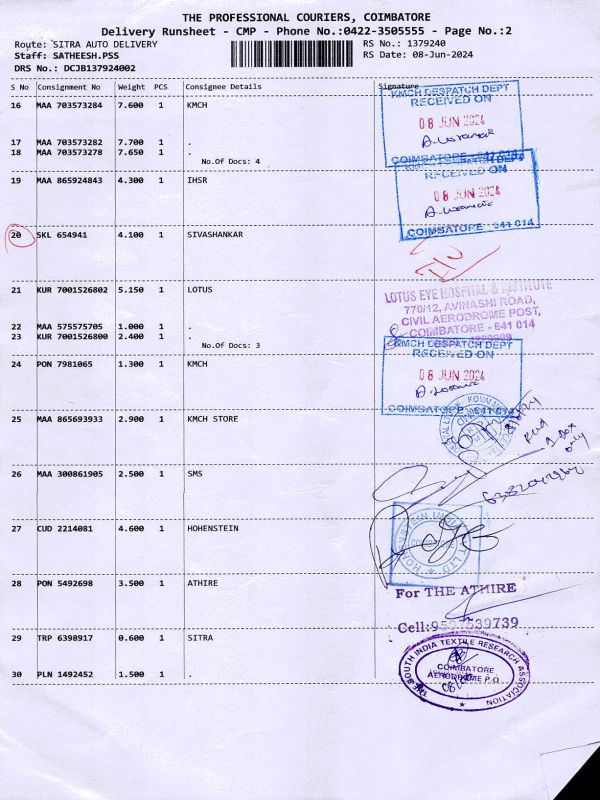 THE PROFESSIONAL COURIERS, COIMBATORE
Delivery Runsheet - CMP - Phone No.:0422-3505555 - Page No.:2
Route: SITRA AUTO DELIVERY RS No.: 1379240
Staff: SATHEESH.PSS RS Date: 08-Jun-2024
DRS No.: DCJB137924002
S No Consignment No Weight PCS Consignee Details Signature
16 MAA 703573284 7.600 1 KMCH
KMCH DESPATCH DEPT
RECEIVED ON
08 JUN 2024
COIMBATORE - 641 014
17 MAA 703573282 7.700 1 .
18 MAA 703573278 7.650 1 .
No.Of Docs: 4
19 MAA 865924843 4.300 1 IHSR
RECEIVED ON
08 JUN 2024
COIMBATORE - 641 014
20 SKL 654941 4.100 1 SIVASHANKAR
21 KUR 7001526802 5.150 1 LOTUS
LOTUS EYE HOSPITAL & INSTITUTE
770/12, AVINASHI ROAD,
CIVIL AERODROME POST,
COIMBATORE - 641 014
22 MAA 575575705 1.000 1 .
23 KUR 7001526800 2.400 1 .
No.Of Docs: 3
24 PON 7981065 1.300 1 KMCH
KMCH DESPATCH DEPT
RECEIVED ON
08 JUN 2024
COIMBATORE - 641 014
25 MAA 865693933 2.900 1 KMCH STORE
26 MAA 300861905 2.500 1 SMS
27 CUD 2214081 4.600 1 HOHENSTEIN
28 PON 5492698 3.500 1 ATHIRE
For THE ATHIRE
29 TRP 6398917 0.600 1 SITRA
THE SOUTH INDIA TEXTILE RESEARCH ASSOCIATION
COIMBATORE
AERODROME P.O
30 PLN 1492452 1.500 1 .